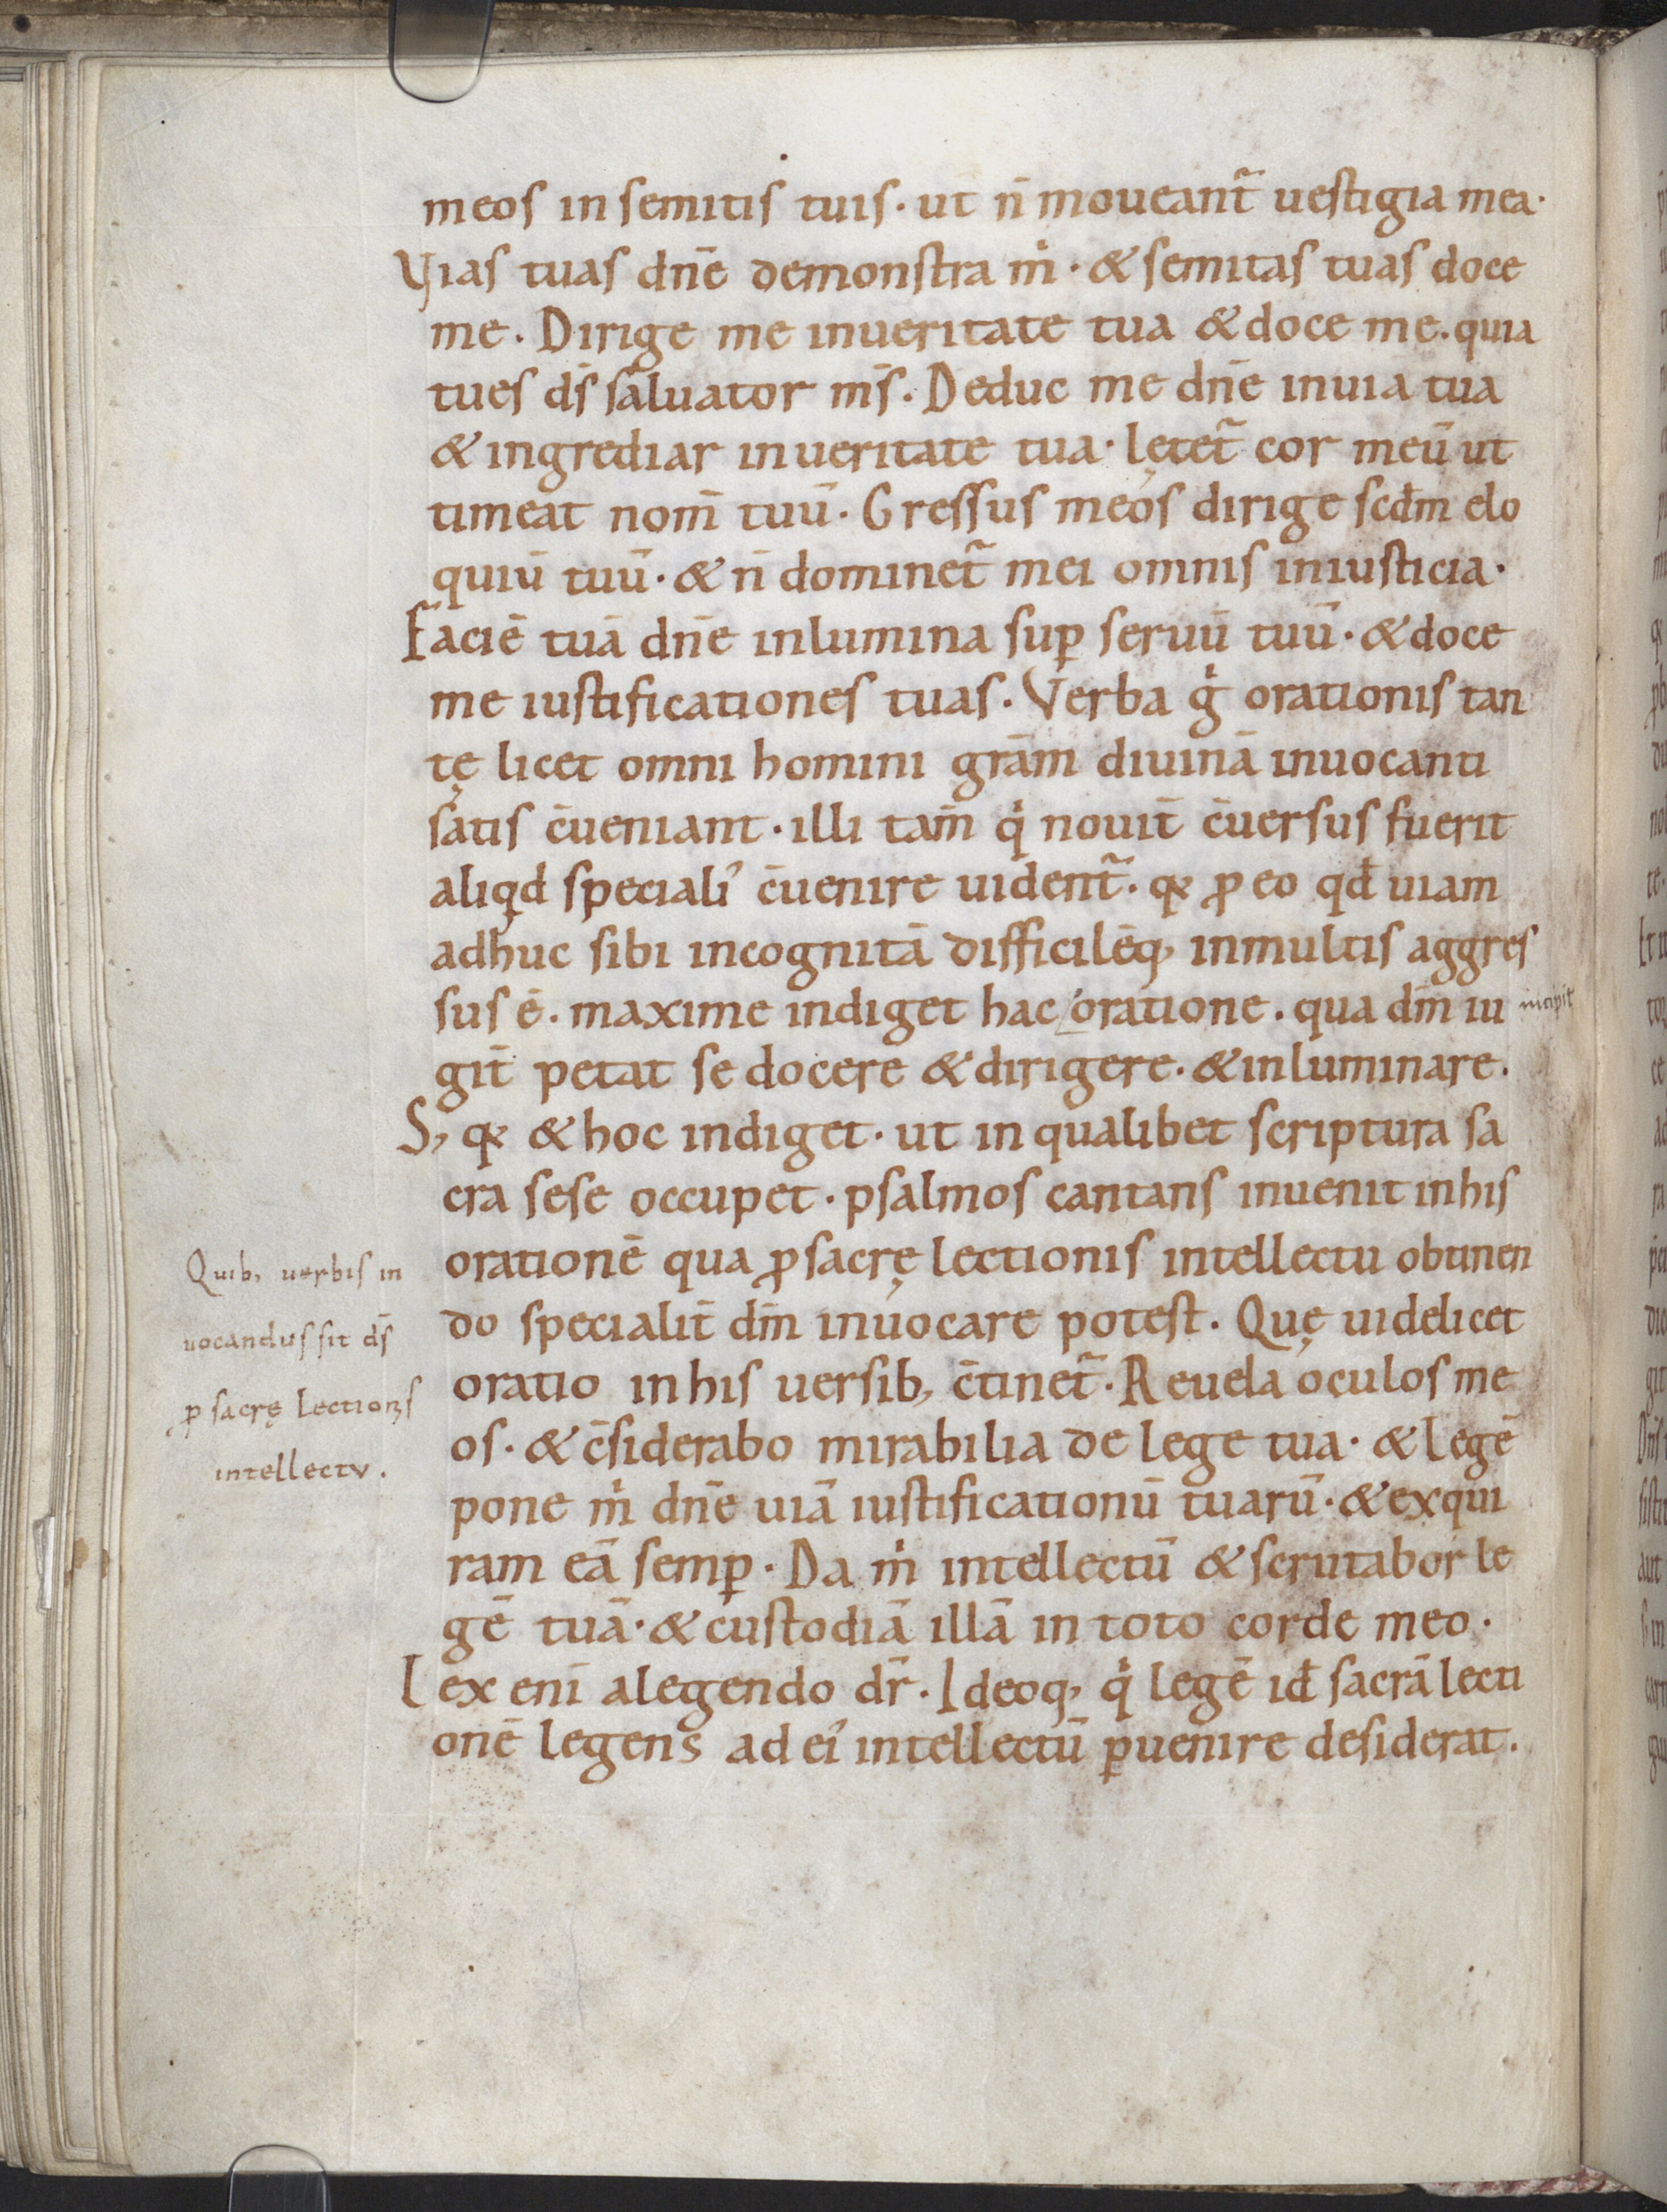 meos in semitis tuis· ut n̄ moueant᷑ uestigia mea·
Vias tuas dn̄e demonstra m̍· & semitas tuas doce
me. Dirige me inueritate tua & doce me. quia
tues ds̄ saluator ms̄. Deduc me dn̄e inuia tua
& ingrediar inueritate tua· lętet᷑ cor meū ut
timeat nom̄ tuū. Gressus meos dirige scđm elo
quiū tuū· & n̄ dominet᷑ mei omnis iniusticia·
Faciē tuā dn̄e inlumina suꝑ seruū tuū· & doce
me iustificationes tuas. Verba g̍ orationis tan
tę licet omni homini gr̄am diuinā inuocanti
satis c̄ueniant· illi tam̄ q̍ nouit̄ c̄uersus fuerit
aliqd speciali᾽ c̄uenire uident᷑. q& ꝓ eo qđ uiam
adhuc sibi incognitā difficilēq; inmultis aggres
sus ē. maxime indiget hac oratione. qua dm̄ iu
incipit
git̄ petat se docere & dirigere. & inluminare.
S; q& & hoc indiget· ut in qualibet scriptura sa
cra sese occupet· psalmos cantans inuenit inhis
orationē qua ꝓ sacrę lectionis intellectu obtinen
do specialit̄ dm̄ inuocare potest. Quę uidelicet
oratio inhis uersib; c̄tinet᷑. Reuela oculos me
os· & c̄siderabo mirabilia de lege tua· & Legē
pone m̍ dn̄e uiā iustificationū tuarū· & exqui
ram eā semꝑ. Da m̍ intellectū & scrutabor le
gē tuā· & custodiā illā in toto corde meo.
Lex enī alegendo dr̄. Ideoq; q̍ legē iđ sacrā lecti
onē legens ad ei᾽ intellectū ꝑuenire desiderat.
Quib; uerbis in
uocandus sit ds̄
ꝓ sacrę Lectionis
intellectu.